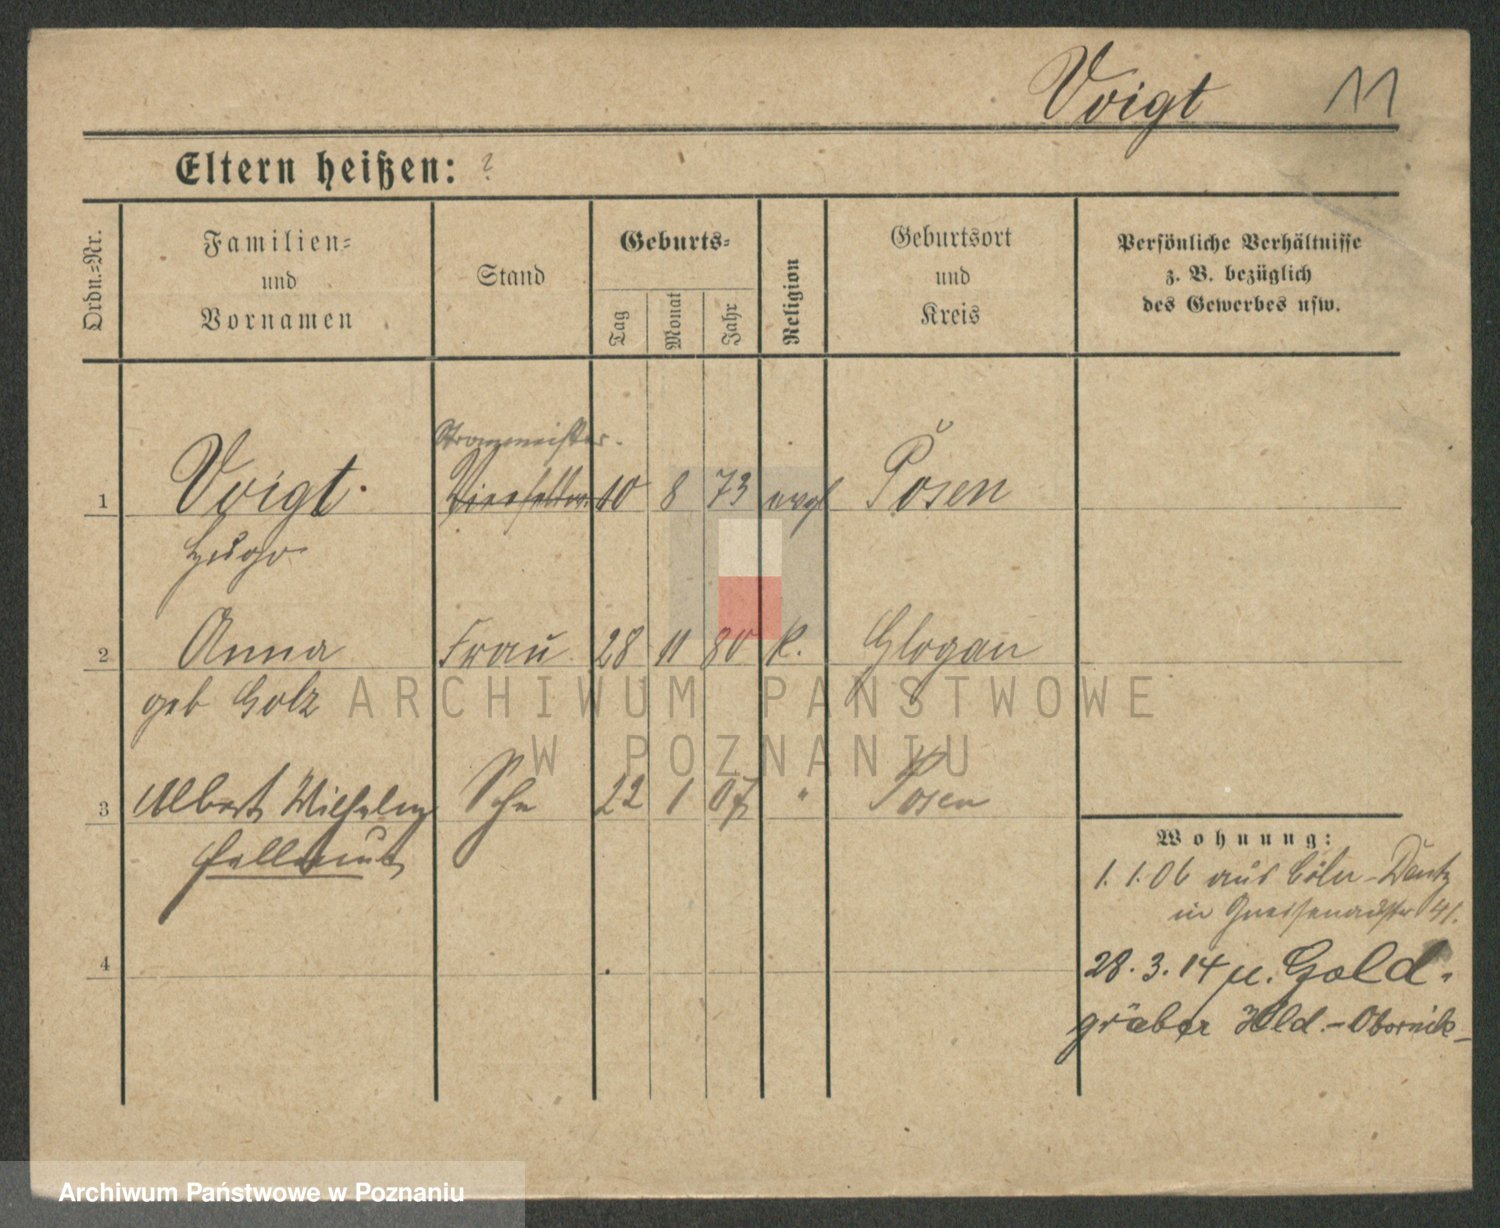 Voigt 11
Eltern heißen: ?
Ordn.=Nr.
Familien=
und
Vornamen
Stand
Geburts=
Tag
Monat
Jahr
Religion
Geburtsort
und
Kreis
Persönliche Verhältnisse
z. B. bezüglich
des Gewerbes usw.
1 Voigt. 10 8 73 evgl Posen
Hugo
2 Anna Frau 28 11 80 k. Glogau
geb Golz
3 Albert Wilhelm Sohn 22 1 07 " Posen
Hellmut
4
Wohnung:
1.1.06 aus Cöln-Deutz
in Gneisenaustr 41.
28.3.14 n. Gold-
gräber Hld.-Obornik
ARCHIWUM PAŃSTWOWE
W POZNANIU
Archiwum Państwowe w Poznaniu